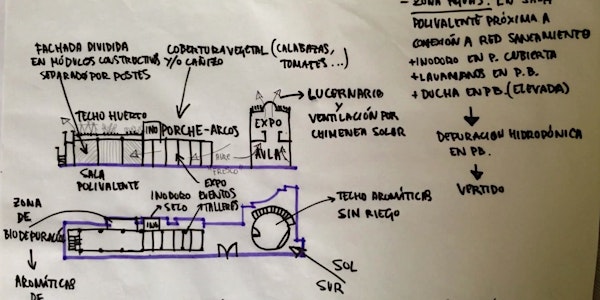 FACHADA DIVIDIDA
EN MÓDULOS CONSTRUCTIVOS
SEPARADO POR POSTES
COBERTURA VEGETAL (CALABAZAS,
Y/O CAÑIZO
TOMATES...)
TECHO HUERTO
INO
PORCHE-ARCOS
AIRE
FRESCO
EXPO
AULA
LUCERNARIO
Y
VENTILACIÓN POR
CHIMENEA SOLAR
SALA
POLIVALENTE
INODORO
SECO
EXPO
EVENTOS
TALLERES
ZONA
DE
BIODEPURACIÓN
INO
TECHO AROMÁTICAS
SIN RIEGO
SOL
SUR
AROMÁTICAS
DE
- ZONA
POLIVALENTE PRÓXIMA A
CONEXIÓN A RED SANEAMIENTO
+ INODORO EN P. CUBIERTA
+ LAVAMANOS EN P.B.
+ DUCHA EN P.B. (ELEVADA)
DEPURACIÓN HIDROPÓNICA
EN PB.
VERTIDO